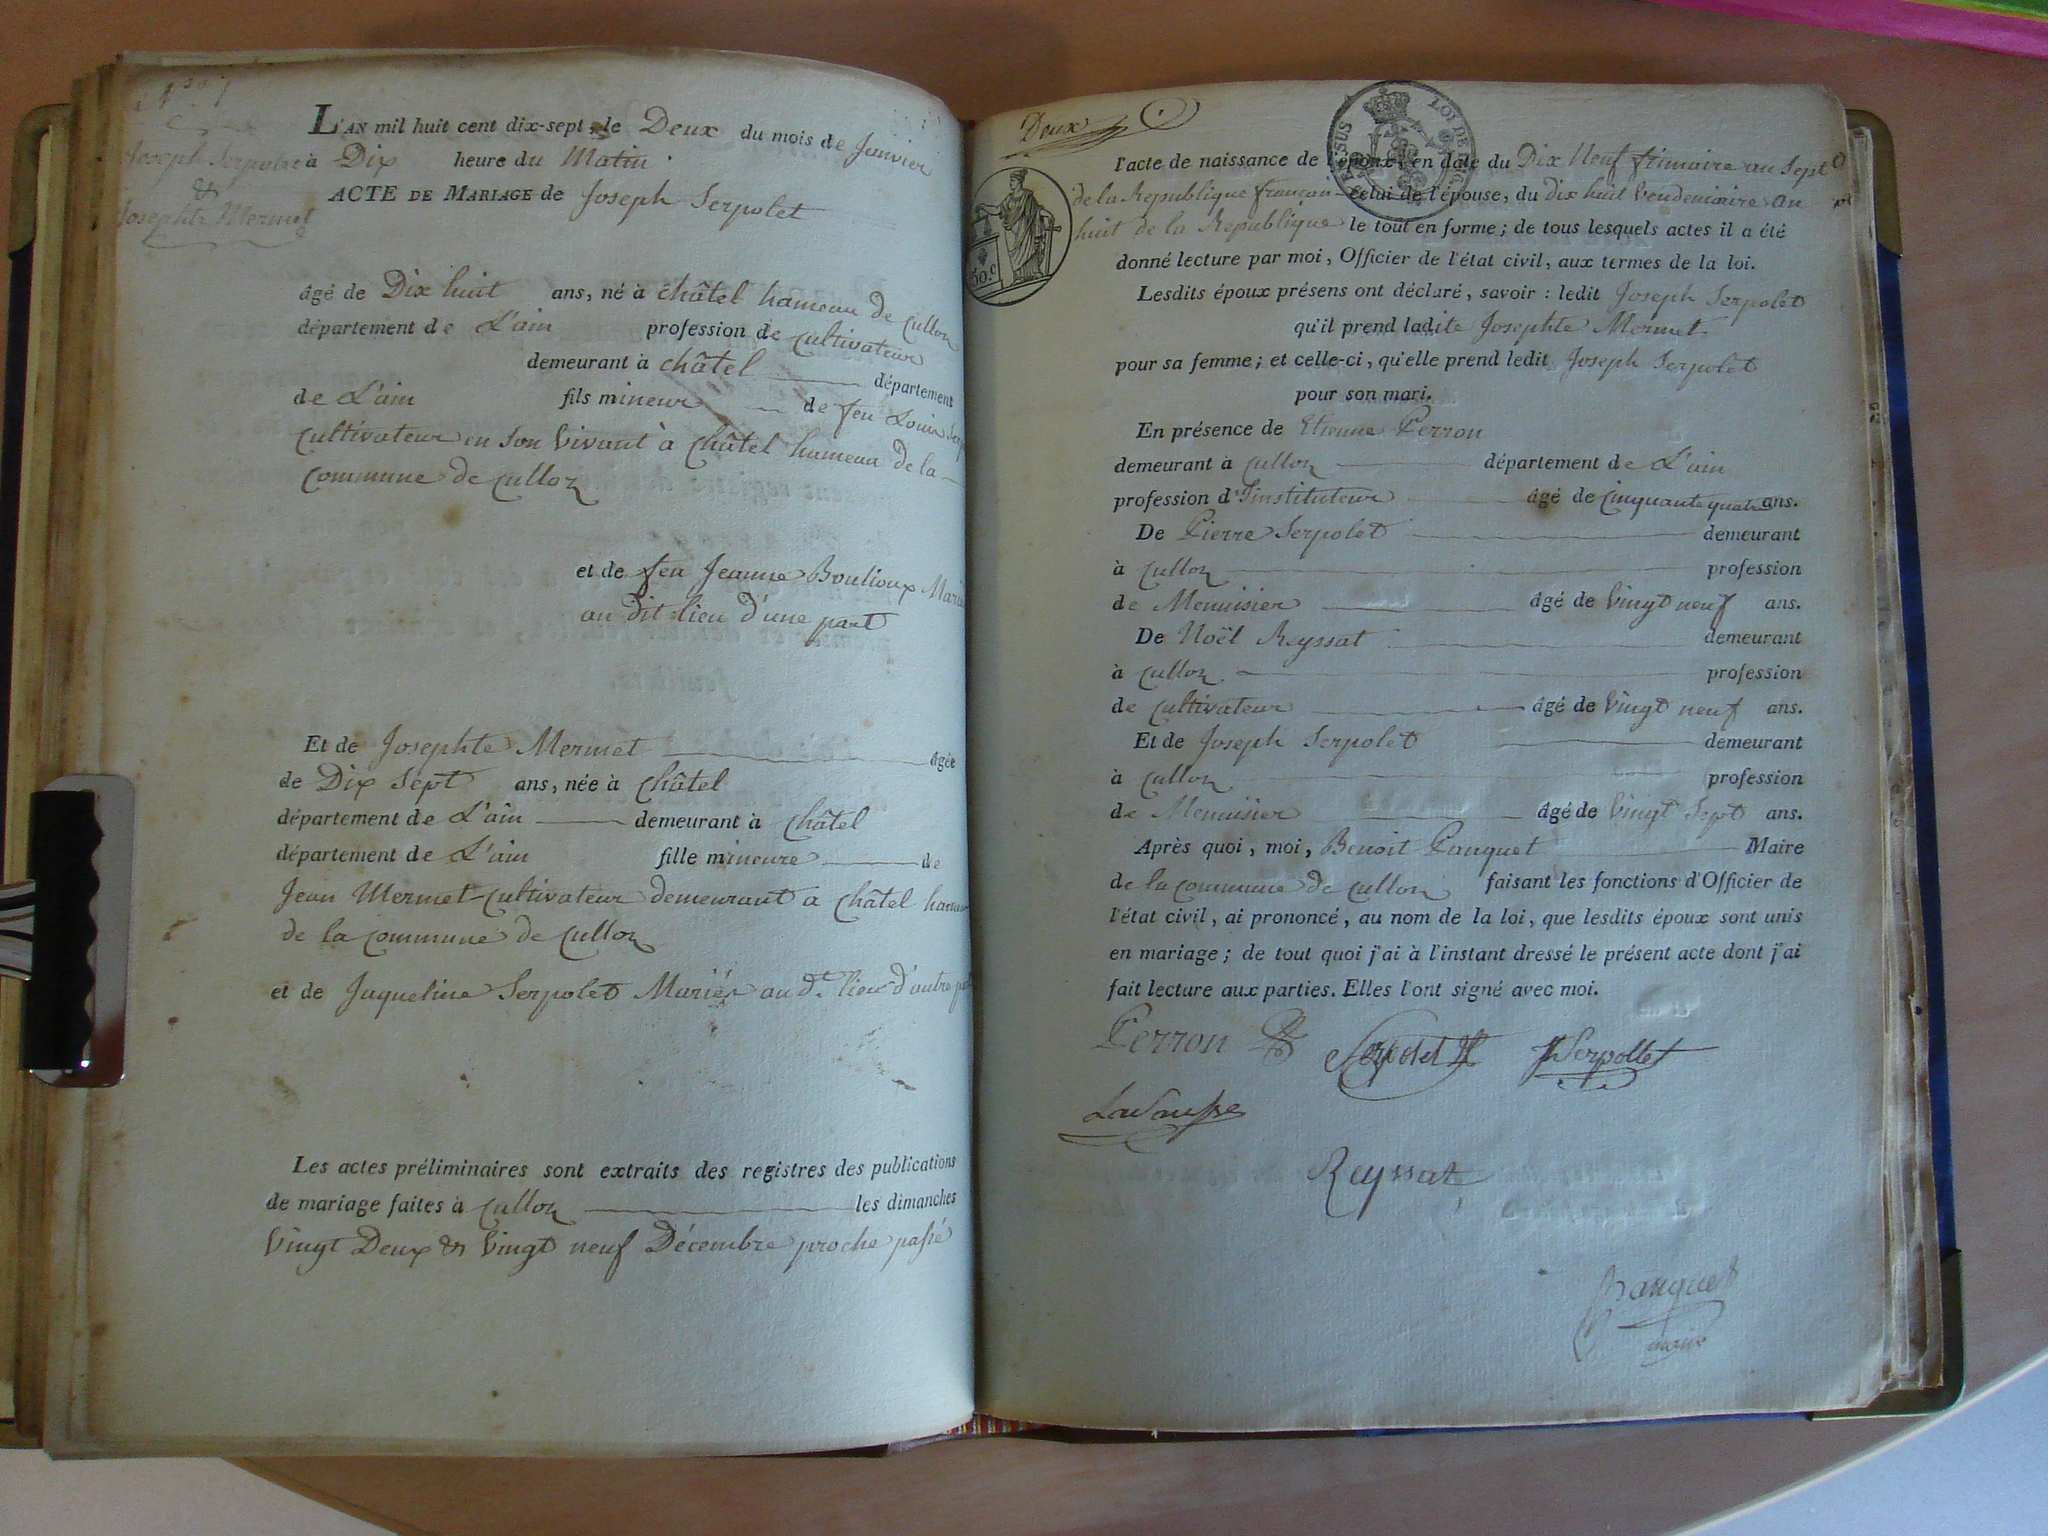 L'AN mil huit cent dix-sept, le Deux du mois de Janvier
Joseph Serpolet à Dix heure du Matin.
&
Josephte Mermet
ACTE DE MARIAGE de Joseph Serpolet
âgé de Dix huit ans, né à châtel hameau de Culloz
département de L'ain profession de Cultivateur
demeurant à châtel département
de L'ain fils mineur de feu Louis
Cultivateur en son Vivant à Châtel hameau de la
Commune de Culloz
et de feu Jeanne Boulioux
au dit lieu d'une part
Et de Josephte Mermet âgée
de Dix Sept ans, née à Châtel
département de L'ain demeurant à châtel
département de L'ain fille mineure de
Jean Mermet Cultivateur demeurant a Châtel
de la Commune de Culloz
et de Jaqueline Serpolet Mariés au dt. lieu d'autre
Les actes préliminaires sont extraits des registres des publications
de mariage faites à Culloz les dimanches
Vingt Deux & Vingt neuf Décembre proche passé
Deux
LOI DE
50.C
l'acte de naissance de l'époux, en date du Dix Neuf frimaire an Sept
de la Republique français celui de l'épouse, du dix huit Vendemiaire an
huit de la Republique le tout en forme; de tous lesquels actes il a été
donné lecture par moi, Officier de l'état civil, aux termes de la loi.
Lesdits époux présens ont déclaré, savoir : ledit Joseph Serpolet
qu'il prend ladite Josephte Mermet
pour sa femme; et celle-ci, qu'elle prend ledit Joseph Serpolet
pour son mari.
En présence de Etienne Perron
demeurant à Culloz département de L'ain
profession d'Instituteur âgé de Cinquante quatre ans.
De Pierre Serpolet demeurant
à Culloz profession
de Menuisier âgé de Vingt neuf ans.
De Noël Reyssat demeurant
à Culloz profession
de Cultivateur âgé de Vingt neuf ans.
Et de Joseph Serpolet demeurant
à Culloz profession
de Menuisier âgé de Vingt Sept ans.
Après quoi, moi, Benoit Panguet Maire
de la Commune de Culloz faisant les fonctions d'Officier de
l'état civil, ai prononcé, au nom de la loi, que lesdits époux sont unis
en mariage; de tout quoi j'ai à l'instant dressé le présent acte dont j'ai
fait lecture aux parties. Elles l'ont signé avec moi.
Perron Serpolet JSerpollet
Reyssat
Panguet
maire